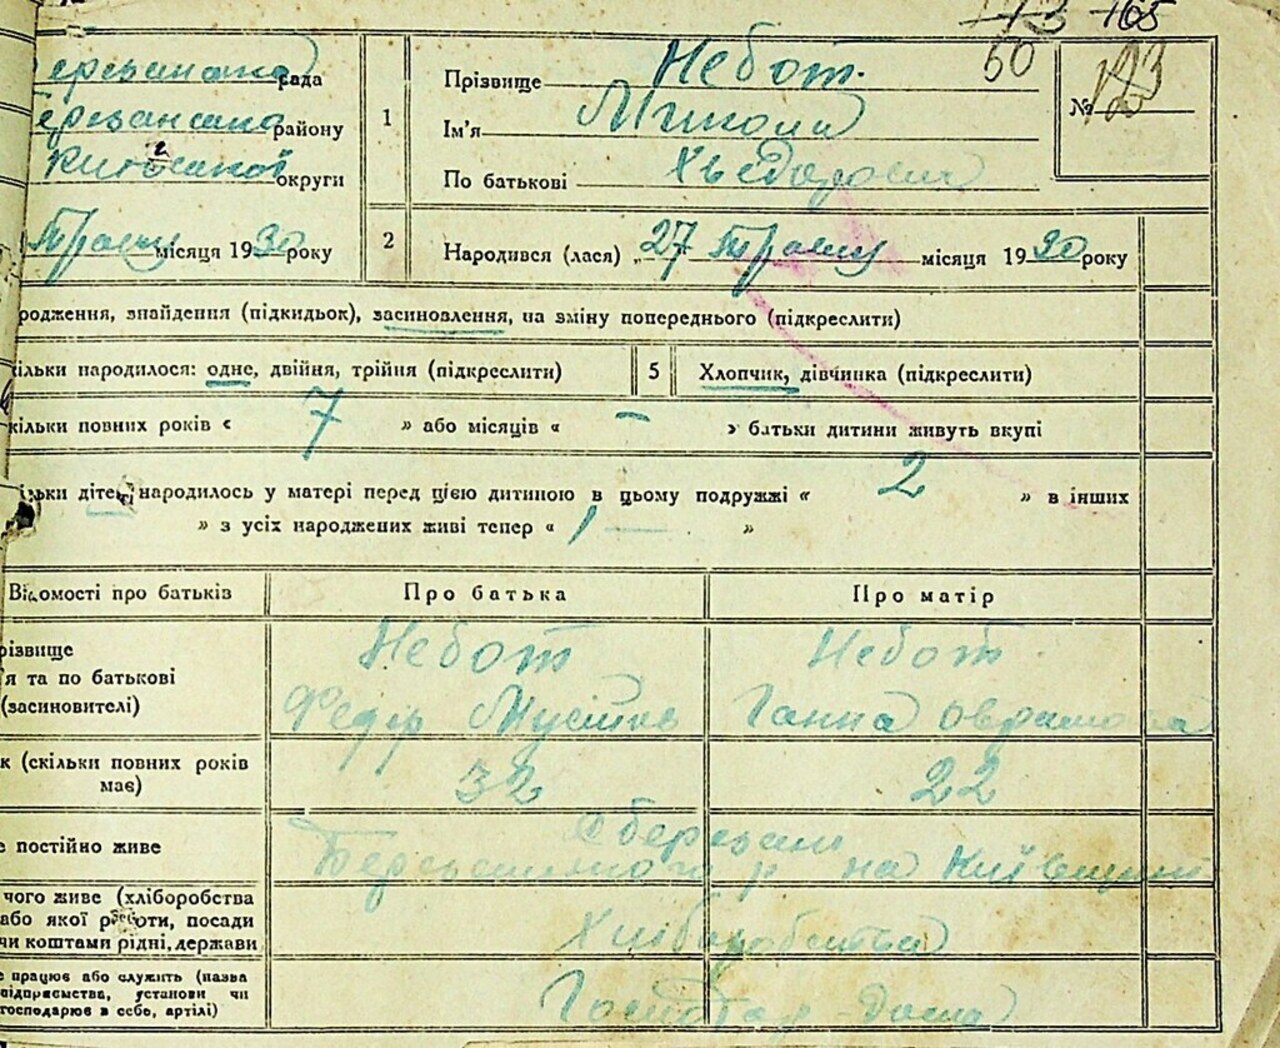 173 165
50
ерезанська рада
ерезанського району
Київської округи
Травня місяця 1930 року
1
Прізвище Небот
Ім'я Микола
По батькові Хведорович
№ 123
2
Народився (лася) „27 Травня місяця 1930 року
родження, знайдення (підкидьок), засиновлення, на зміну попереднього (підкреслити)
кільки народилося: одне, двійня, трійня (підкреслити)
5
Хлопчик, дівчинка (підкреслити)
кільки повних років « 7 » або місяців « – » батьки дитини живуть вкупі
ільки дітей народилось у матері перед цією дитиною в цьому подружжі « 2 » в інших
» з усіх народжених живі тепер « 1 — »
Відомості про батьків
Про батька
Про матір
різвище
'я та по батькові
(засиновителі)
Небот
Федір Мусійов
Небот
Ганна Оврамова
к (скільки повних років
має)
32
22
е постійно живе
С Березань
Березанського р на Київщині
чого живе (хліборобства
або якої роботи, посади
чи коштами рідні, держави
Хліборобства
е працює або служить (назва
підприємства, установи чи
господарює в себе, артілі)
Господар дома